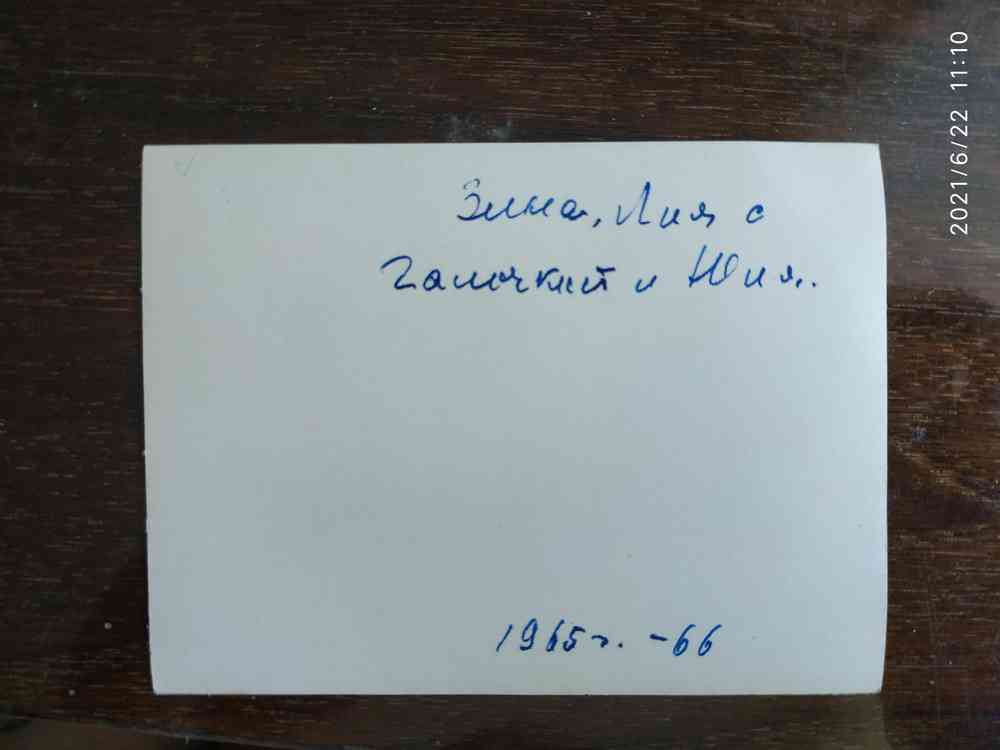 Зина, Лия с
Галочкой и Юля.
1965г. -66
2021/6/22 11:10